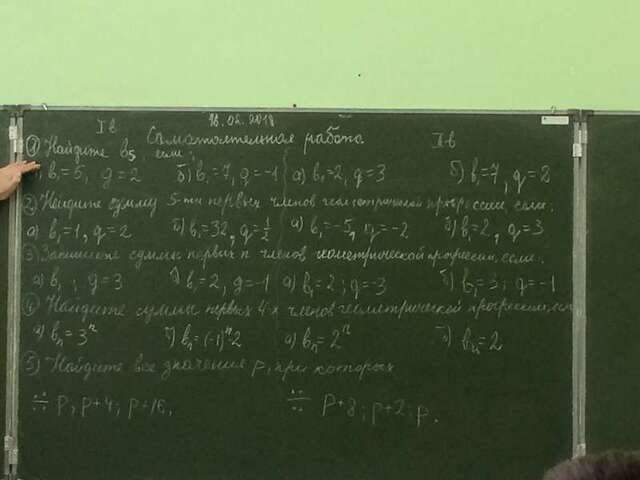 I в 16.02.2018 II в
Самостоятельная работа
① Найдите b₅, если:
b₁=5, q=2 б) b₁=7, q=-1 а) b₁=2, q=3 б) b₁=7, q=2
2) Найдите сумму 5-ти первых членов геометрической прогрессии, если:
а) b₁=1, q=2 б) b₁=32, q=1/2 а) b₁=-5, q=-2 б) b₁=2, q=3
3) Запишите суммы первых n членов геометрической прогрессии, если:
а) b₁ ; q=3 b₁=2, q=-1 а) b₁=2; q=-3 б) b₁=3; q=-1
④ Найдите суммы первых 4-х членов геометрической прогрессии,
а) bₙ=3ⁿ bₙ=(-1)ⁿ2 а) bₙ=2ⁿ б) =2
5) Найдите все значения p, при которых
÷÷ p, p+4; p+16. ÷÷ p+8; p+2; p.